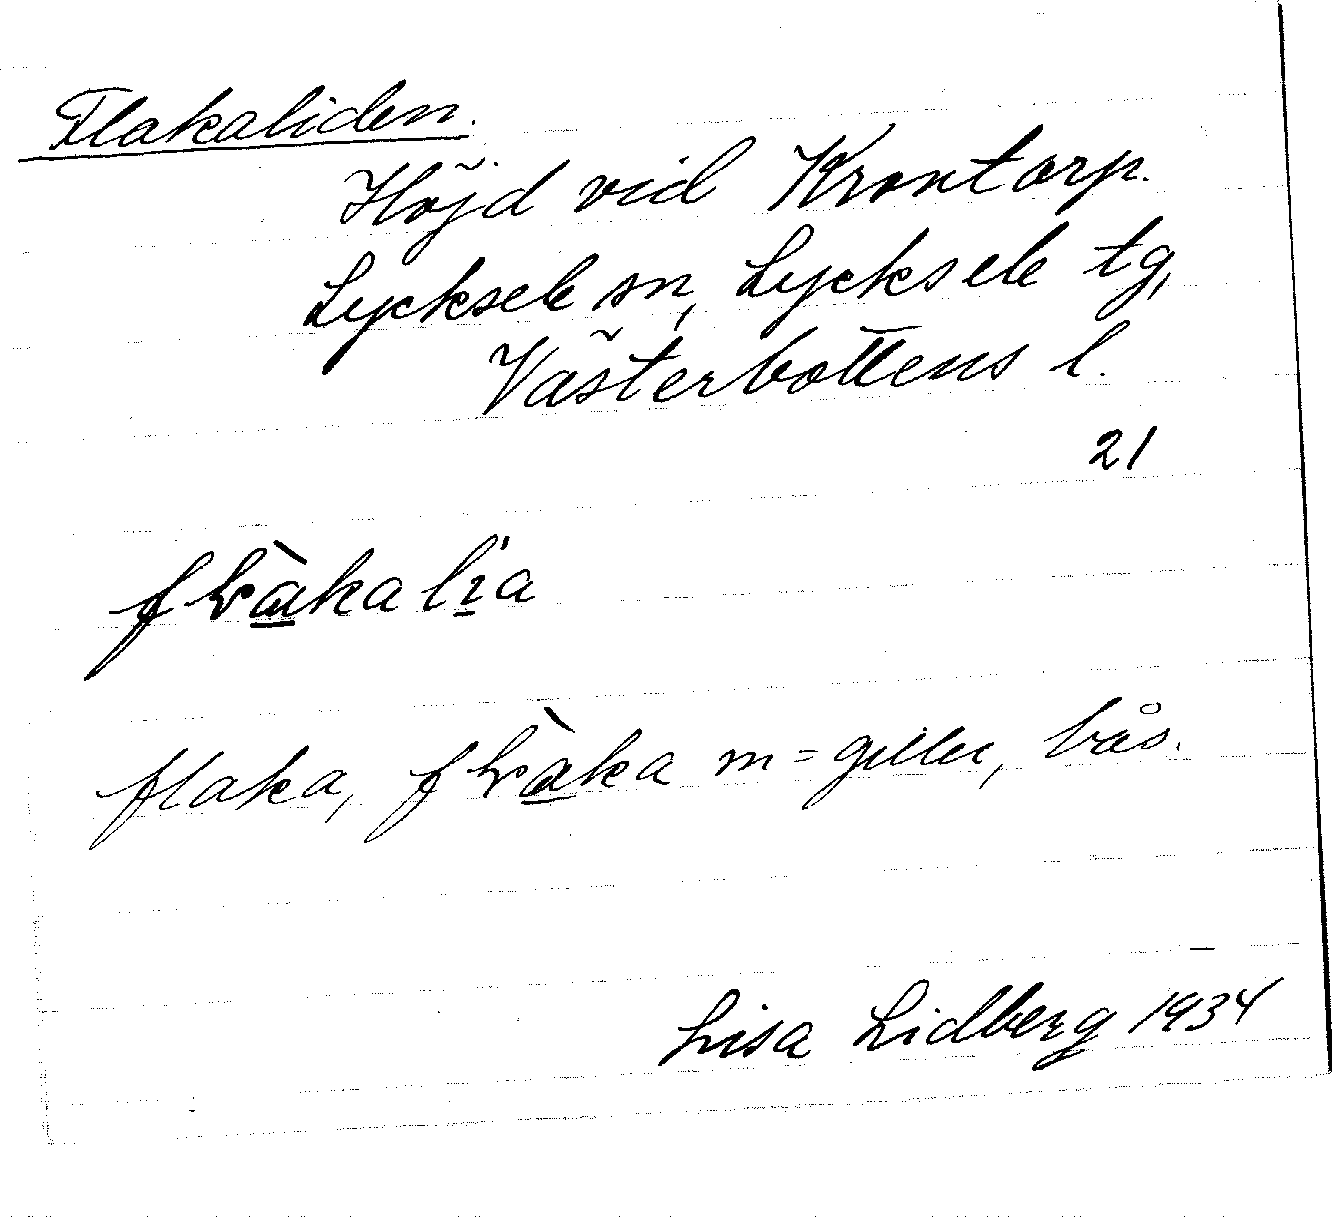 Flakaliden.
Höjd vid Krontorp.
Lycksele sn, Lycksele tg,
Västerbottens l.
21
fɽàkalı̍a
flaka, fɽàka m = giller, bås.
Lisa Lidberg 1934